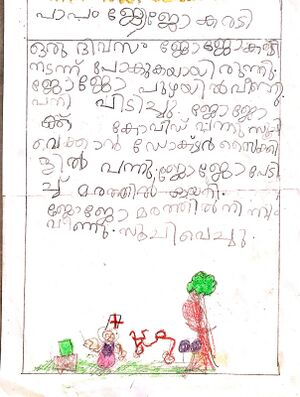 പാവം ജോജോ കരടി
ഒരു ദിവസം ജോജോ കരടി
നടന്ന് പോകുകയായിരുന്നു.
ജോജോ പുഴയിൽ വീണു
പനി പിടിച്ചു. ജോജോ
ക്ക് കോവിഡ് വന്നു സൂചി
വെക്കാൻ ഡോക്ടർ സൈക്കി
ളിൽ വന്നു. ജോജോ പേടി
ച്ച് മരത്തിൽ കയറി.
ജോജോ മരത്തിൽ നിന്നും
വീണു. സൂചി വെച്ചു.